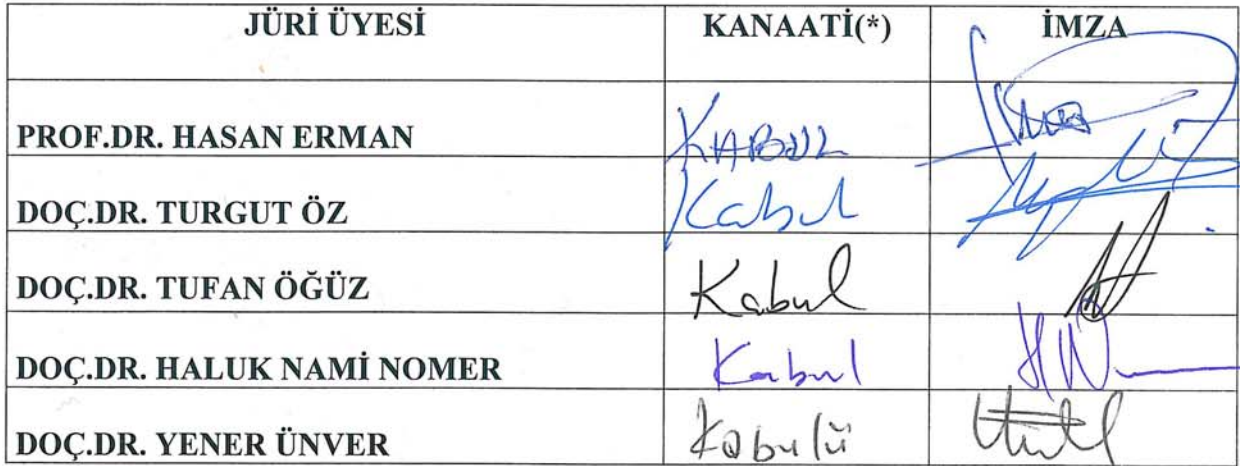 JÜRİ ÜYESİ KANAATİ(*) İMZA
PROF.DR. HASAN ERMAN KABUL
DOÇ.DR. TURGUT ÖZ Kabul
DOÇ.DR. TUFAN ÖĞÜZ Kabul
DOÇ.DR. HALUK NAMİ NOMER Kabul
DOÇ.DR. YENER ÜNVER Kabulü